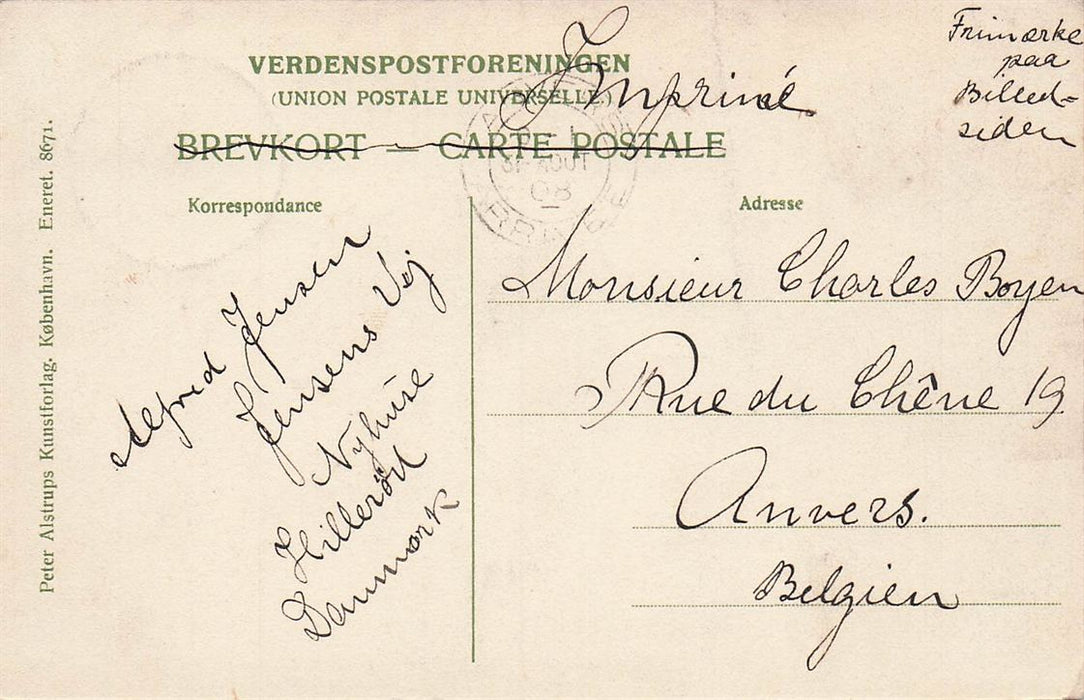 Frimærke
paa
Billed-
siden
VERDENSPOSTFORENINGEN
(UNION POSTALE UNIVERSELLE.)
Imprimé
BREVKORT — CARTE POSTALE
AOUT
08
Korrespondance
Adresse
Alfred Jensen
Jensens Vej
Nyhuse
Hilleröd
Danmark
Monsieur Charles Boyen
Rue du Chêne 19
Anvers.
Belgien
Peter Alstrups Kunstforlag. København. Eneret. 8671.